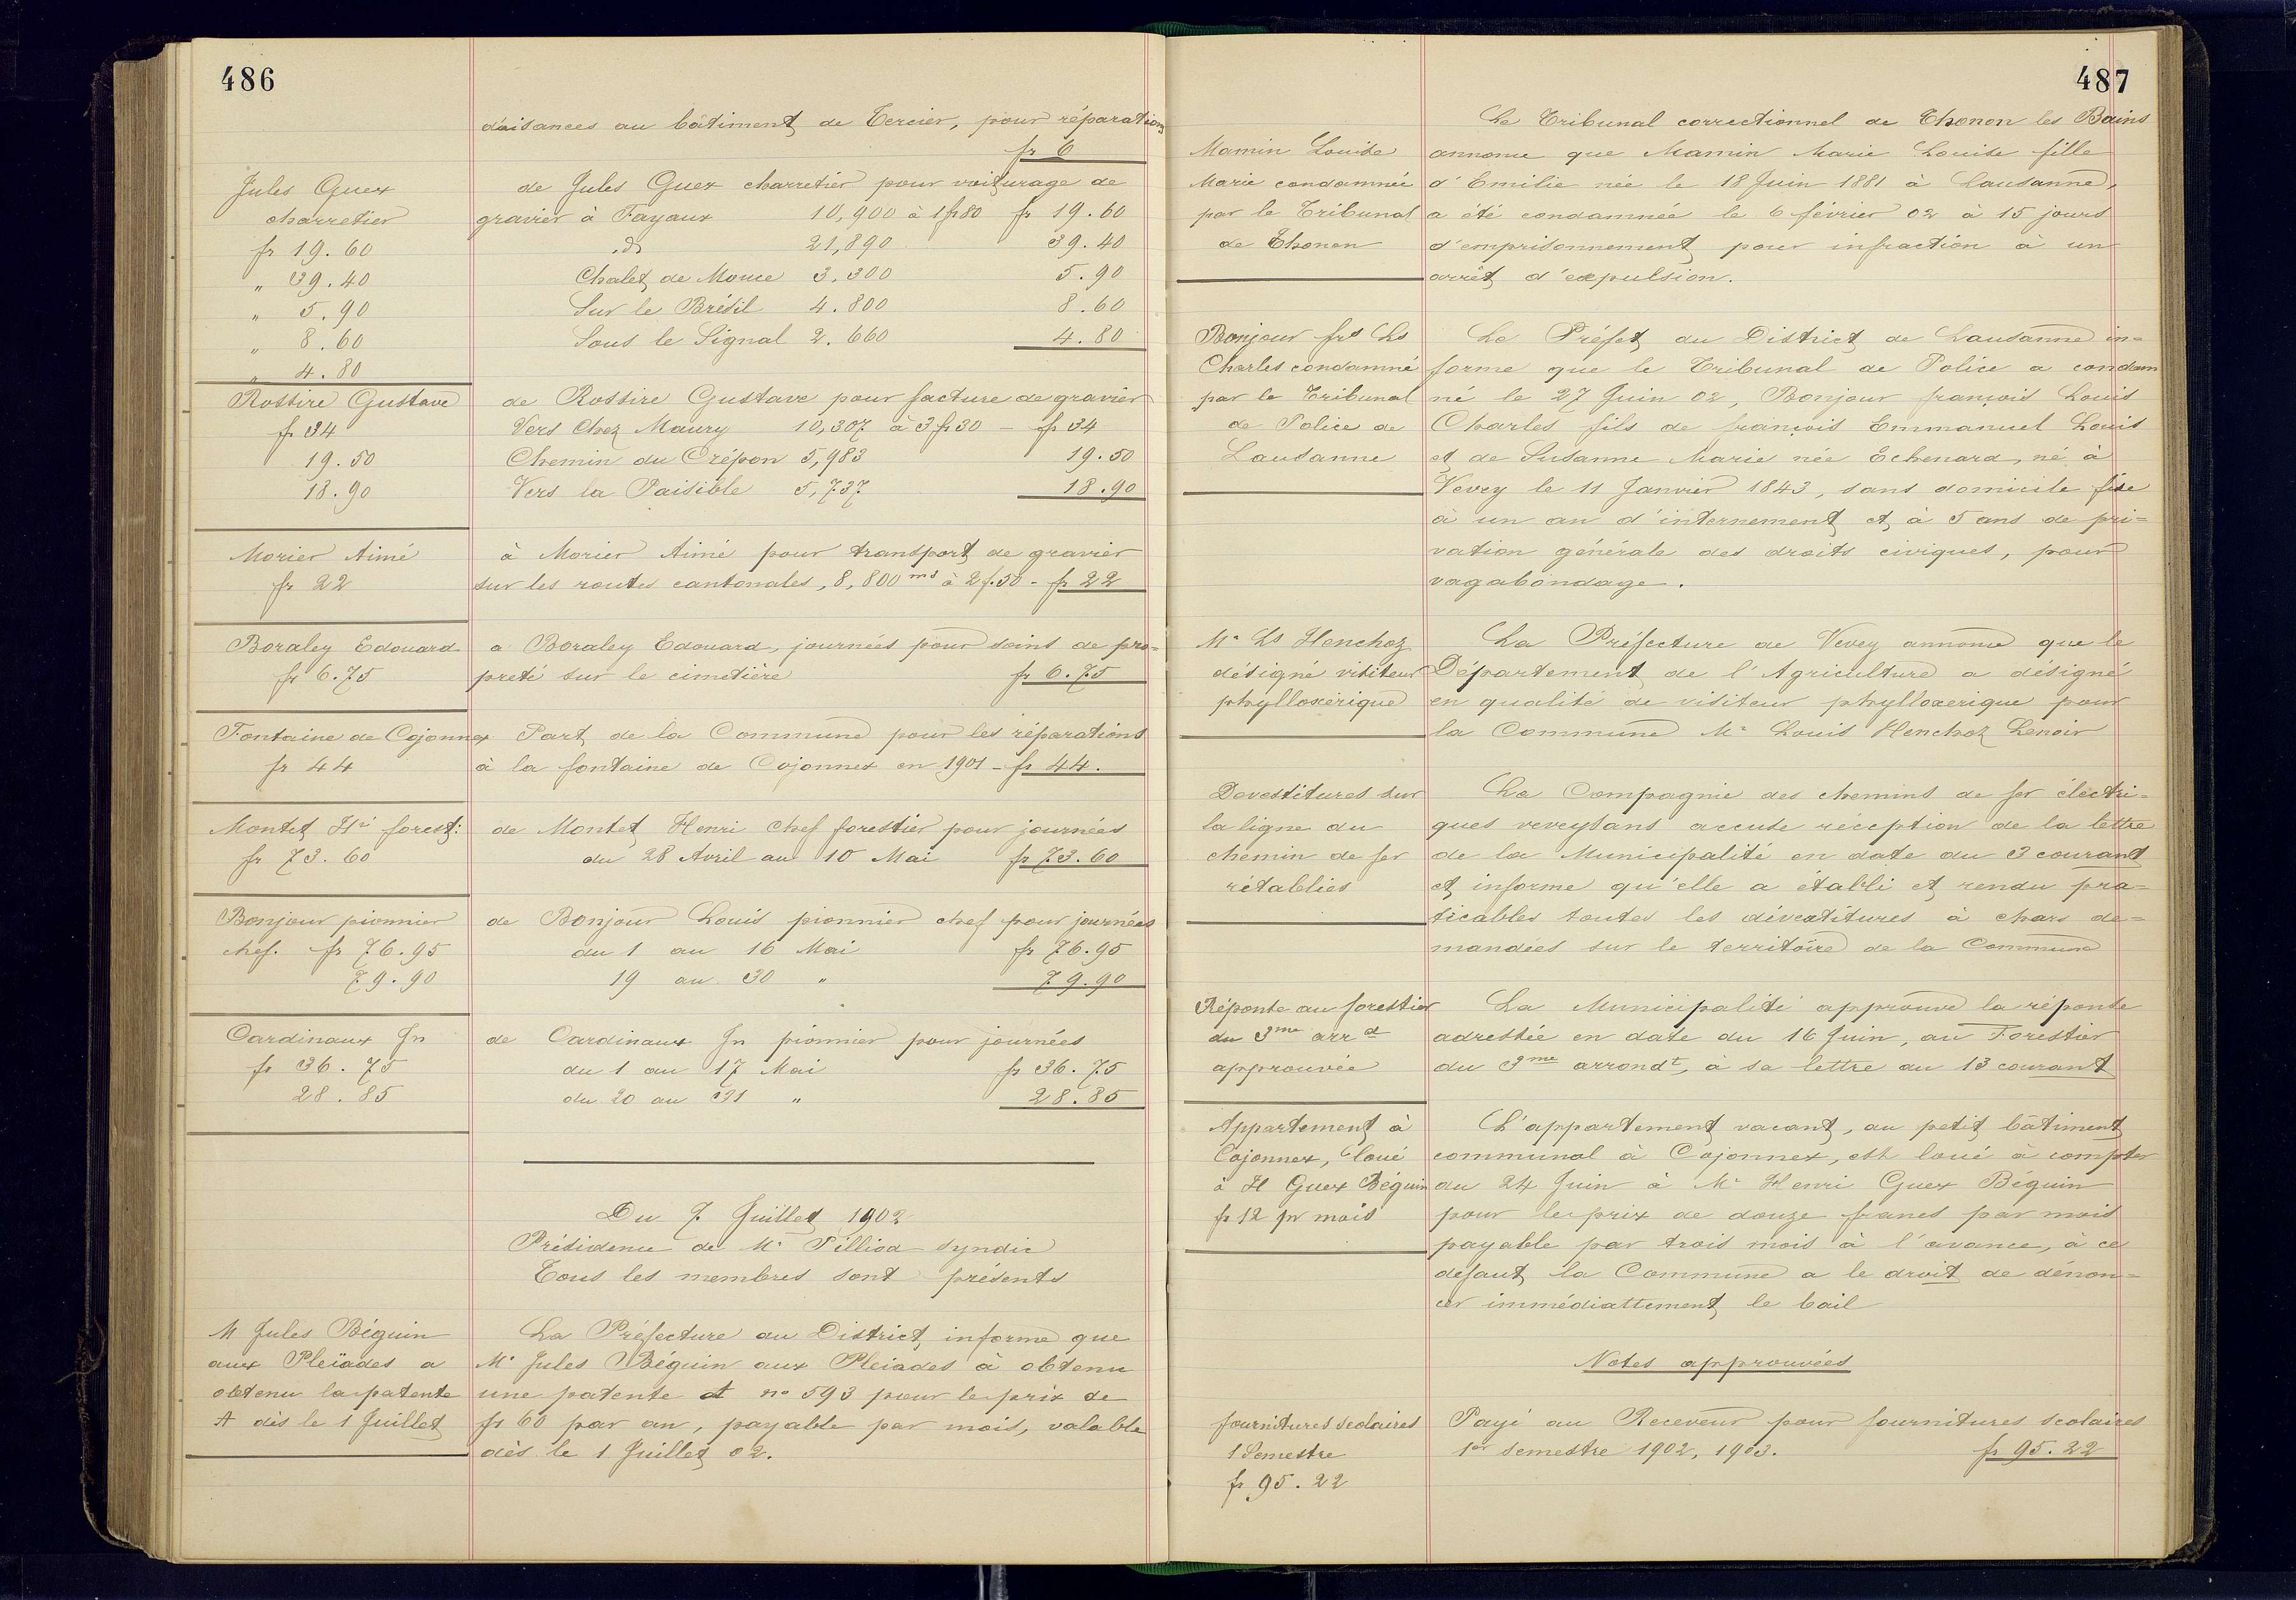 486
d'aisances au bâtiment de Tercier, pour réparations
fr 6
Jules Guex
charretier
fr 19.60
" 39.40
" 5.90
" 8.60
" 4.80
de Jules Guex charretier pour voiturage de
gravier à Fayaux 10,900 à 1 fr 80 fr 19.60
d° 21,890 39.40
Chalet de Mouce 3.300 5.90
Sur le Brésil 4.800 8.60
Sous le Signal 2.660 4.80
Rossire Gustave
fr 34
19.50
18.90
de Rossire Gustave pour facture de gravier
Vers Chez Maury 10,307 à 3 fr 30 - fr 34
Chemin du Crépon 5,983 19.50
Vers la Paisible 5,737 18.90
Morier Aimé
fr 22
à Morier Aimé pour transport de gravier
sur les routes cantonales, 8,800 m3 à 2 f. 50 - fr 22
Boraley Edouard
fr 6.75
a Boraley Edouard, journées pour soins de pro=
preté sur le cimetière fr 6.75
Fontaine de Cojonnex
fr 44
Part de la Commune pour les réparations
à la fontaine de Cojonnex en 1901 - fr 44.
Montet Hri forest:
fr 73.60
de Montet Henri chef forestier pour journées
du 28 Avril au 10 Mai fr 73.60
Bonjour pionnier
chef. fr 76.95
79.90
de Bonjour Louis pionnier chef pour journées
du 1 au 16 Mai fr 76.95
19 au 30 " 79.90
Cardinaux Jn
fr 36.75
28.85
de Cardinaux Jn pionnier pour journées
du 1 au 17 Mai fr 36.75
du 20 au 31 " 28.85
Du 7 Juillet 1902
Présidence de Mr Pilliod syndic
Tous les membres sont présents
M Jules Béguin
aux Pleïades a
obtenu la patente
A dès le 1 Juillet
La Préfecture du District informe que
Mr Jules Béguin aux Pleiades à obtenu
une patente A no 593 pour le prix de
fr 60 par an, payable par mois, valable
dès le 1 Juillet 02.
487
Mamin Louise
Marie condamnée
par le Tribunal
de Thonon
Le Tribunal correctionnel de Thonon les Bains
annonce que Mamin Marie Louise fille
d'Emilie née le 18 Juin 1881 à Lausanne,
a été condamnée le 6 février 02 à 15 jours
d'emprisonnement pour infraction à un
arrêt d'expulsion.
Bonjour frs Ls
Charles condamné
par le Tribunal
de Police de
Lausanne
Le Préfet du District de Lausanne in=
forme que le Tribunal de Police a condam
né le 27 Juin 02, Bonjour françois Louis
Charles fils de françois Emmanuel Louis
et de Susanne Marie née Echenard, né à
Vevey le 11 Janvier 1843, sans domicile fixe
à un an d'internement et à 5 ans de pri=
vation générale des droits civiques, pour
vagabondage.
Mr Ls Henchoz
désigné visiteur
phylloxérique
La Préfecture de Vevey annonce que le
Département de l'Agriculture a désigné
en qualité de visiteur phylloxerique pour
la Commune Mr Louis Henchoz Lenoir
Devestitures sur
la ligne du
chemin de fer
rétablies
La Compagnie des chemins de fer électri=
ques veveysans accuse réception de la lettre
de la Municipalité en date du 3 courant
et informe qu'elle a établi et rendu pra=
ticables toutes les dévestitures à chars de=
mandées sur le territoire de la Commune
Réponse au forestier
du 3me arrd
approuvée
La Municipalité approuve la réponse
adressée en date du 16 Juin, au Forestier
du 3me arrondt, à sa lettre du 13 courant
Appartement à
Cojonnex, loué
à H Guex Béguin
fr 12 pr mois
L'appartement vacant, au petit bâtiment
communal à Cojonnex, est loué à compter
du 24 Juin à Mr Henri Guex Béguin
pour le prix de douze francs par mois
payable par trois mois à l'avance, à ce
defaut la Commune a le droit de dénon=
cer immédiattement le bail
Notes approuvées
fournitures scolaires
1 Semestre
fr 95.22
Payé au Receveur pour fournitures scolaires
1er semestre 1902, 1903. fr 95.22